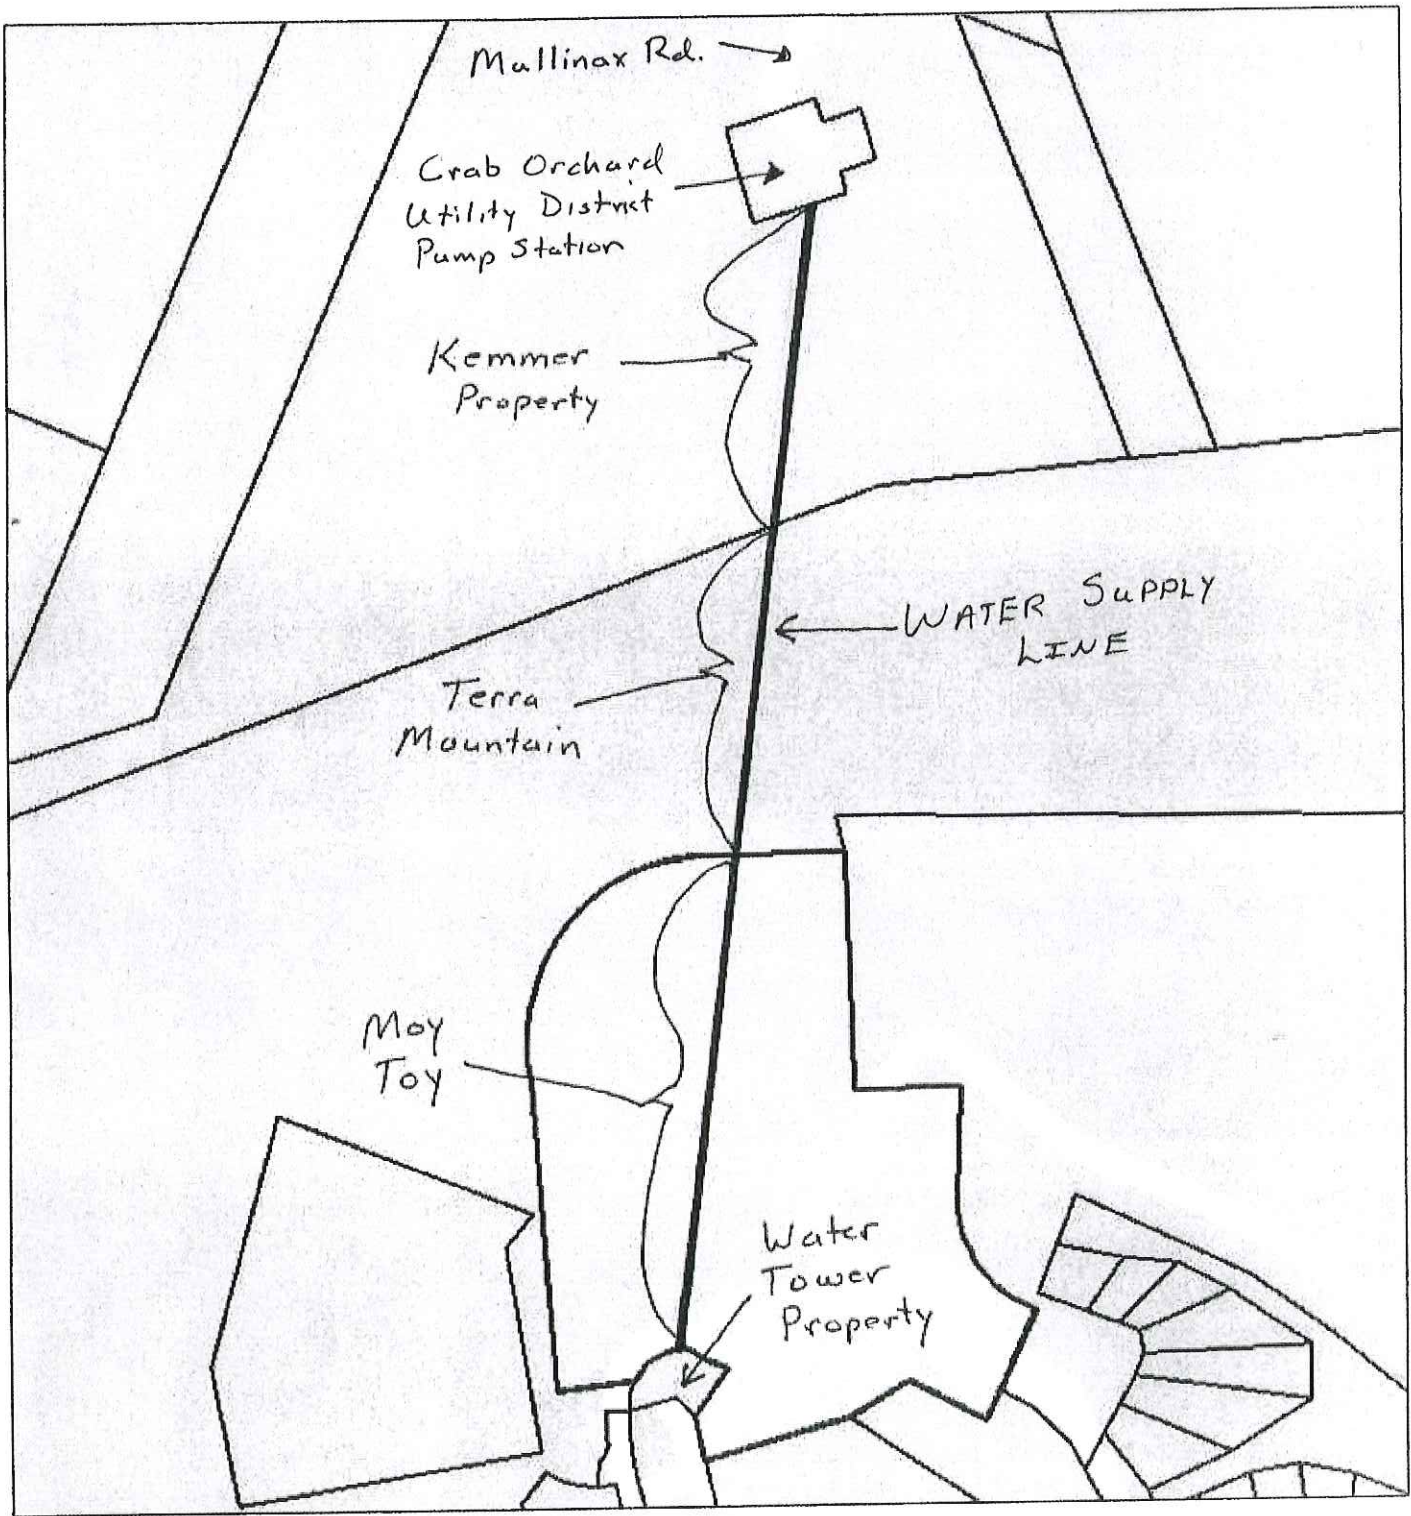 Mullinax Rd.
Crab Orchard
Utility District
Pump Station
Kemmer
Property
WATER SUPPLY
LINE
Terra
Mountain
Moy
Toy
Water
Tower
Property